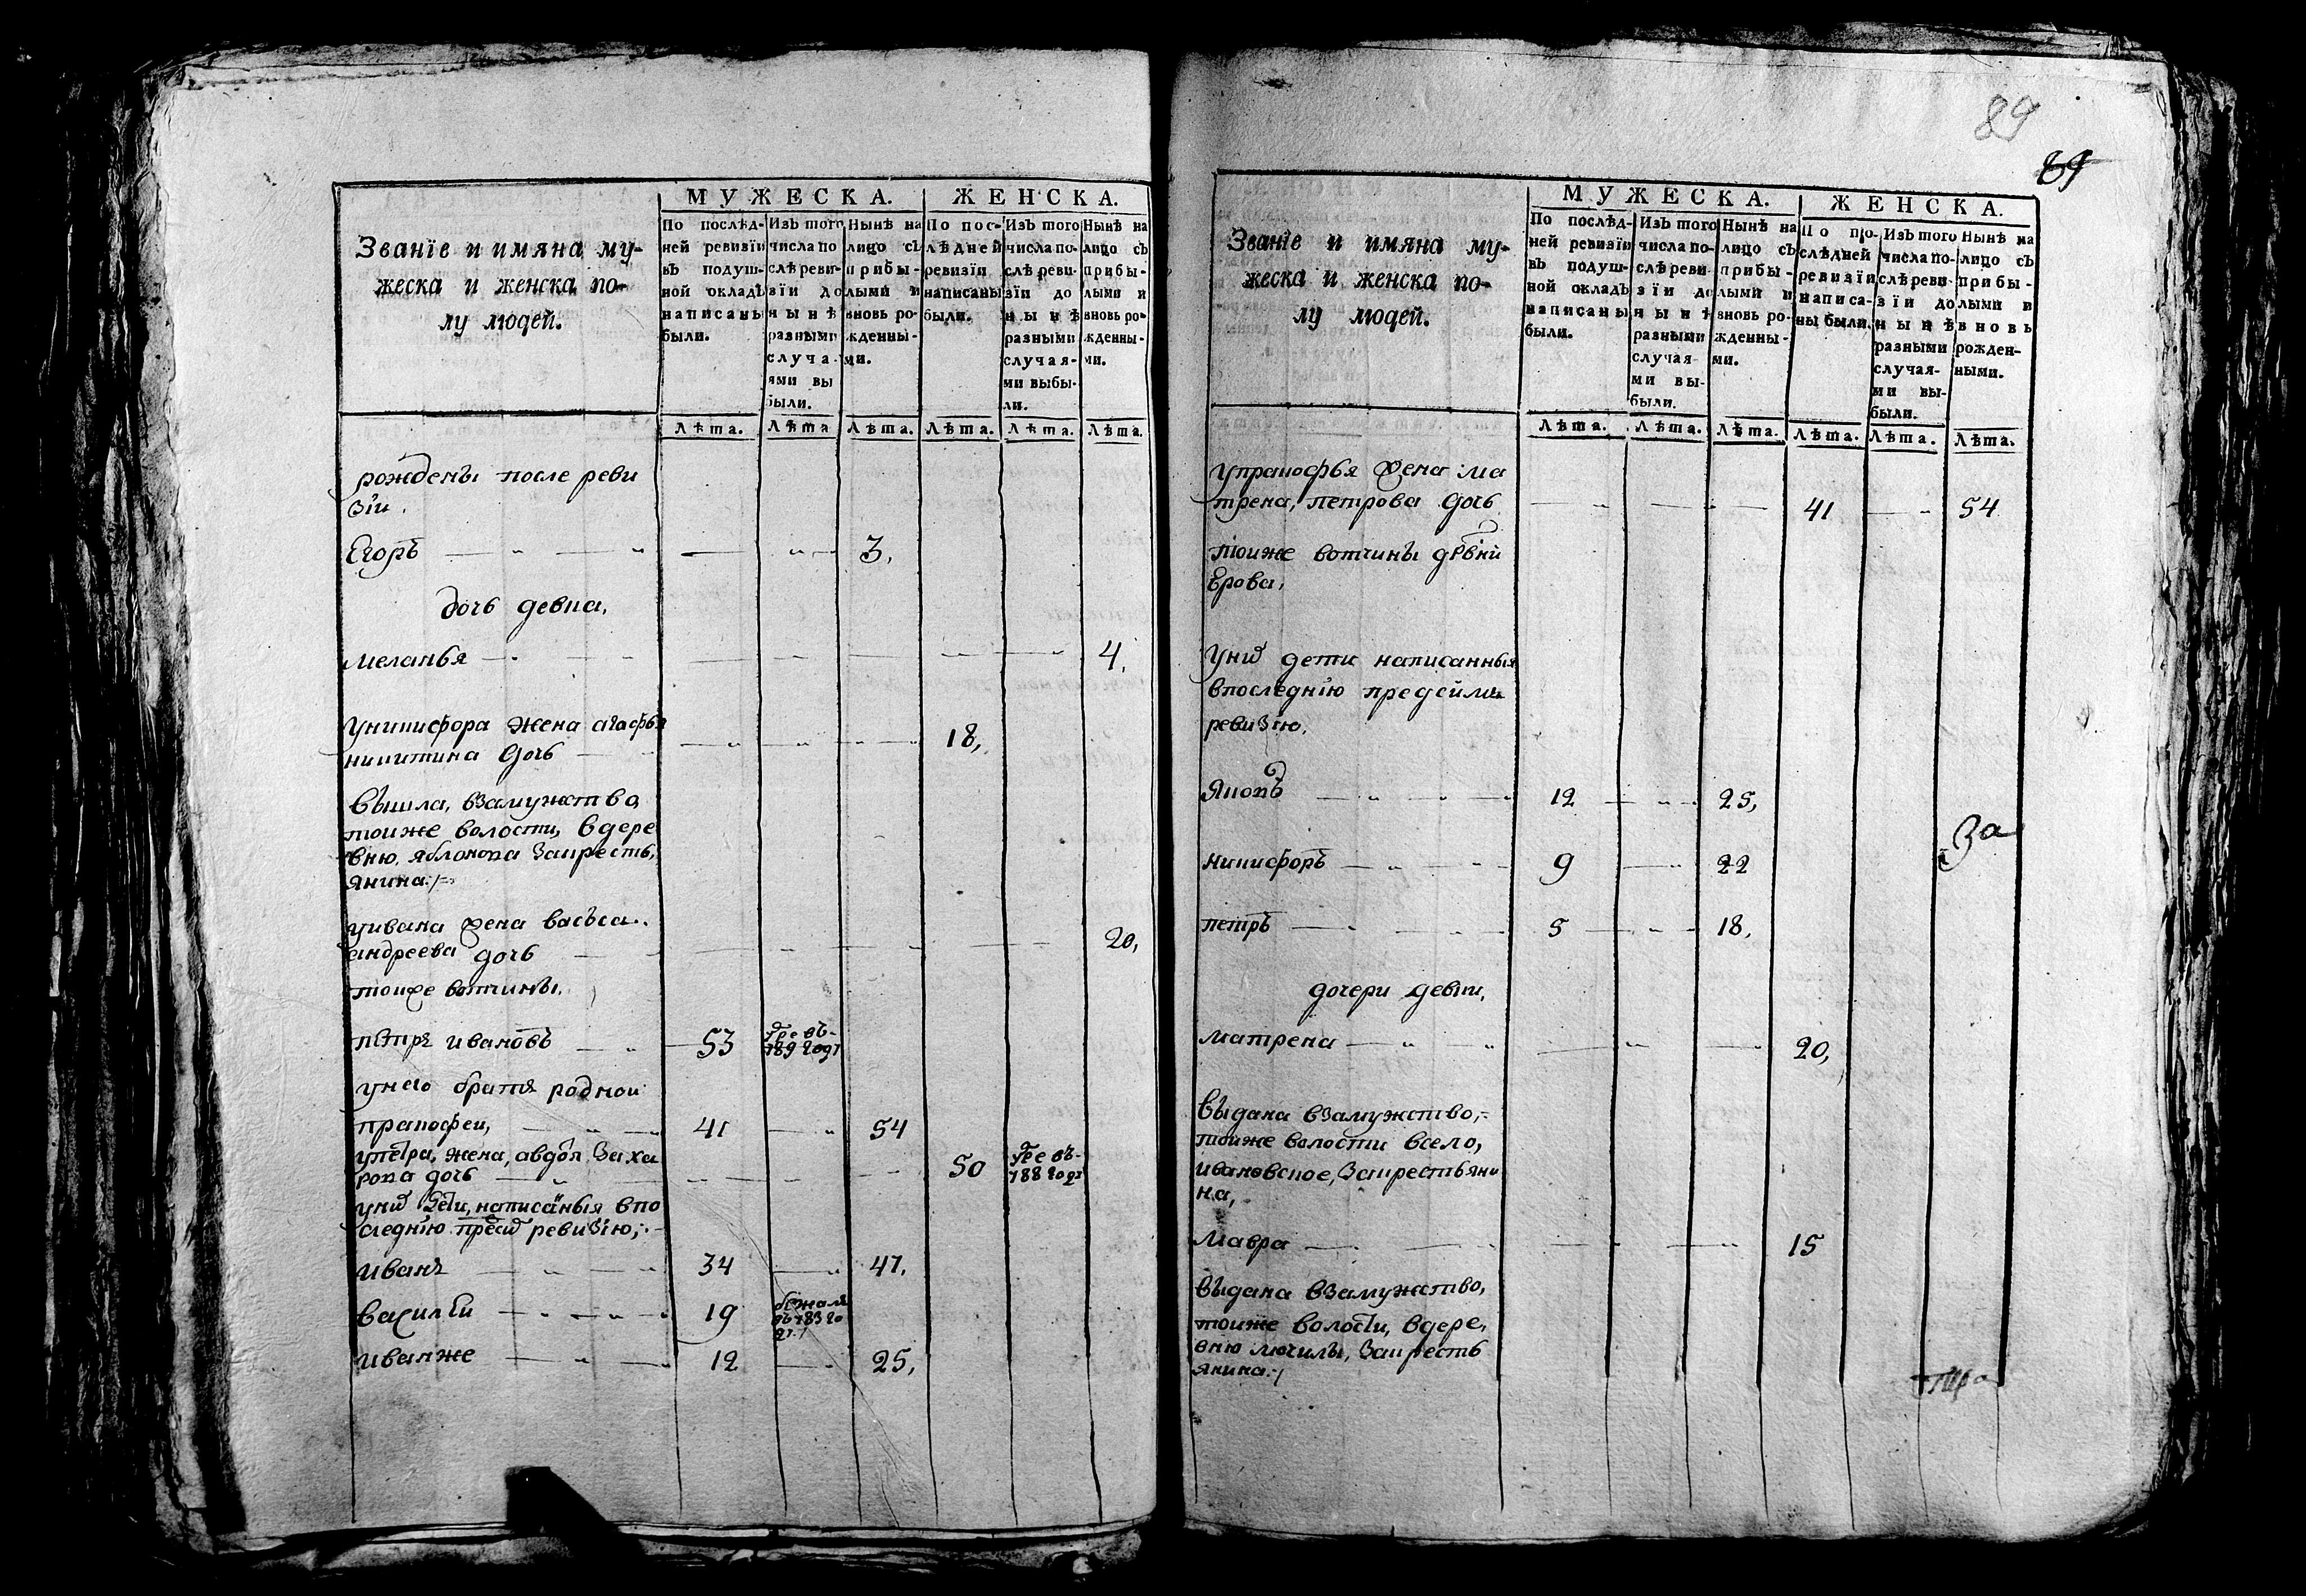 МУЖЕСКА. ЖЕНСКА.
Званїе и имяна му-
жеска и женска по-
лу людей.
По послѣд-
ней ревизїи
въ подуш-
ной окладъ
написаны
были.
Изъ того
числа по
слѣ реви-
зїи до
нынѣ
разными
случа-
ями вы
были.
Нынѣ на
лицо съ
прибы-
лыми и
вновь ро-
жденны-
ми.
По пос-
лѣдней
ревизїи
написаны
были.
Изъ того
числа по-
слѣ реви-
зїи до
нынѣ
разными
случая-
ми выбы-
ли.
Нынѣ на
лицо съ
прибы-
лыми и
вновь ро-
жденны-
ми.
Лѣта. Лѣта Лѣта. Лѣта. Лѣта. Лѣта.
рождены после реви
зїи.
Егоръ 3.
дочь девка.
меланья 4.
уникифора жена агафья
никитина дочь 18,
вышла, взамужство,
тоиже волости, вдере
вню, яблонова закресть,
янина:/=
уивана жена васъса..
андреева дочь 20,
тоиже вотчины.
петръ ивановъ 53 умре въ- 789 году
унего братья родной
прокофеи, 41 54
упетра, жена, авдот. Заха
рова дочь 50 умре въ- 788 году
унихъ дети, написаныя впо
следнїю пред ревизїю;.-
иванъ 34 47.
василеи 19 бежалъ въ 783 го ду:/
иванже 12 25,
89
89
МУЖЕСКА. ЖЕНСКА.
Званїе и имяна му-
жеска и женска по-
лу людей.
По послѣд-
ней ревизїи
въ подуш-
ной окладъ
написаны
были.
Изъ того
числа по-
слѣ реви-
зїи до
нынѣ
разными
случая-
ми вы-
были.
Нынѣ на
лицо съ
прибы-
лыми и
вновь ро-
жденны-
ми.
По по-
слѣдней
ревизїи
написа-
ны были.
Изъ того
числа по-
слѣ реви-
зїи до
нынѣ
разными
случая-
ми вы-
были.
Нынѣ на
лицо съ
прибы-
лыми и
вновь
рожден-
ными.
Лѣта. Лѣта. Лѣта. Лѣта. Лѣта. Лѣта.
упрокофья жена ма
трена, петрова дочь 41 54
тоиже вотчины дрвни
Ерова,
унихъ дети написанныя
впоследнїю предейми
ревизїю.
Яковъ 12 25,
За
никифоръ 9 22
петръ 5 18.
дочери девки.
матрена 20,
выдана взамужство,=
тоиже волости всело,
ивановское, Закрестьяни
на,
мавра 15
выдана взамужство,
тоиже волости, вдере,
вню мочилы, Закресть
янина:/